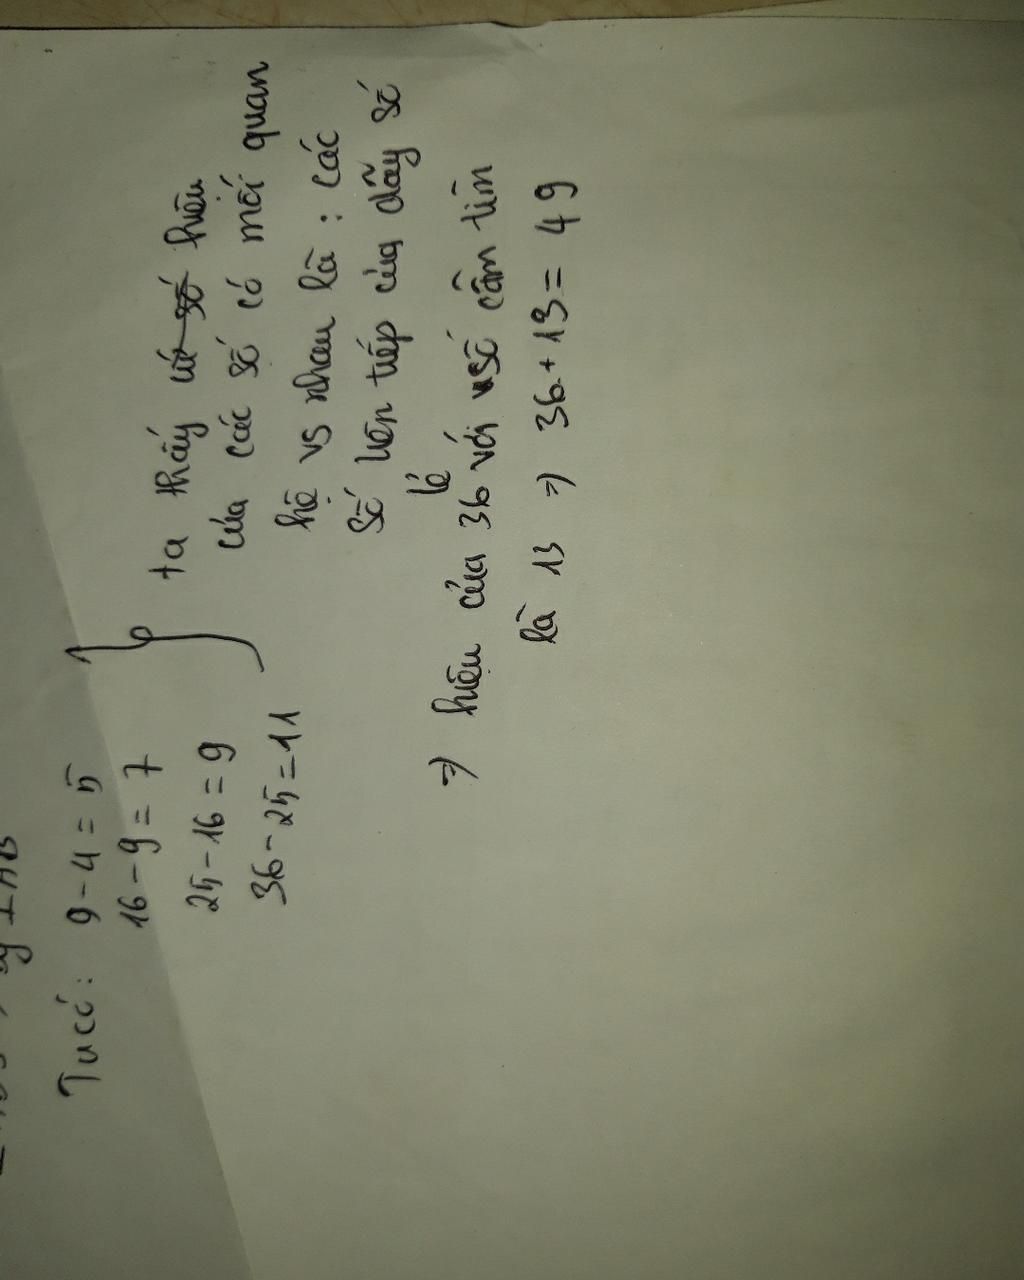 Ta có: 9-4=5
16-9=7
25-16=9
36-25=11
ta thấy hiệu
của các số có mối quan
hệ vs nhau là: các
số liên tiếp của dãy số
lẻ
=> hiệu của 36 với số cần tìm
là 13 => 36+13=49